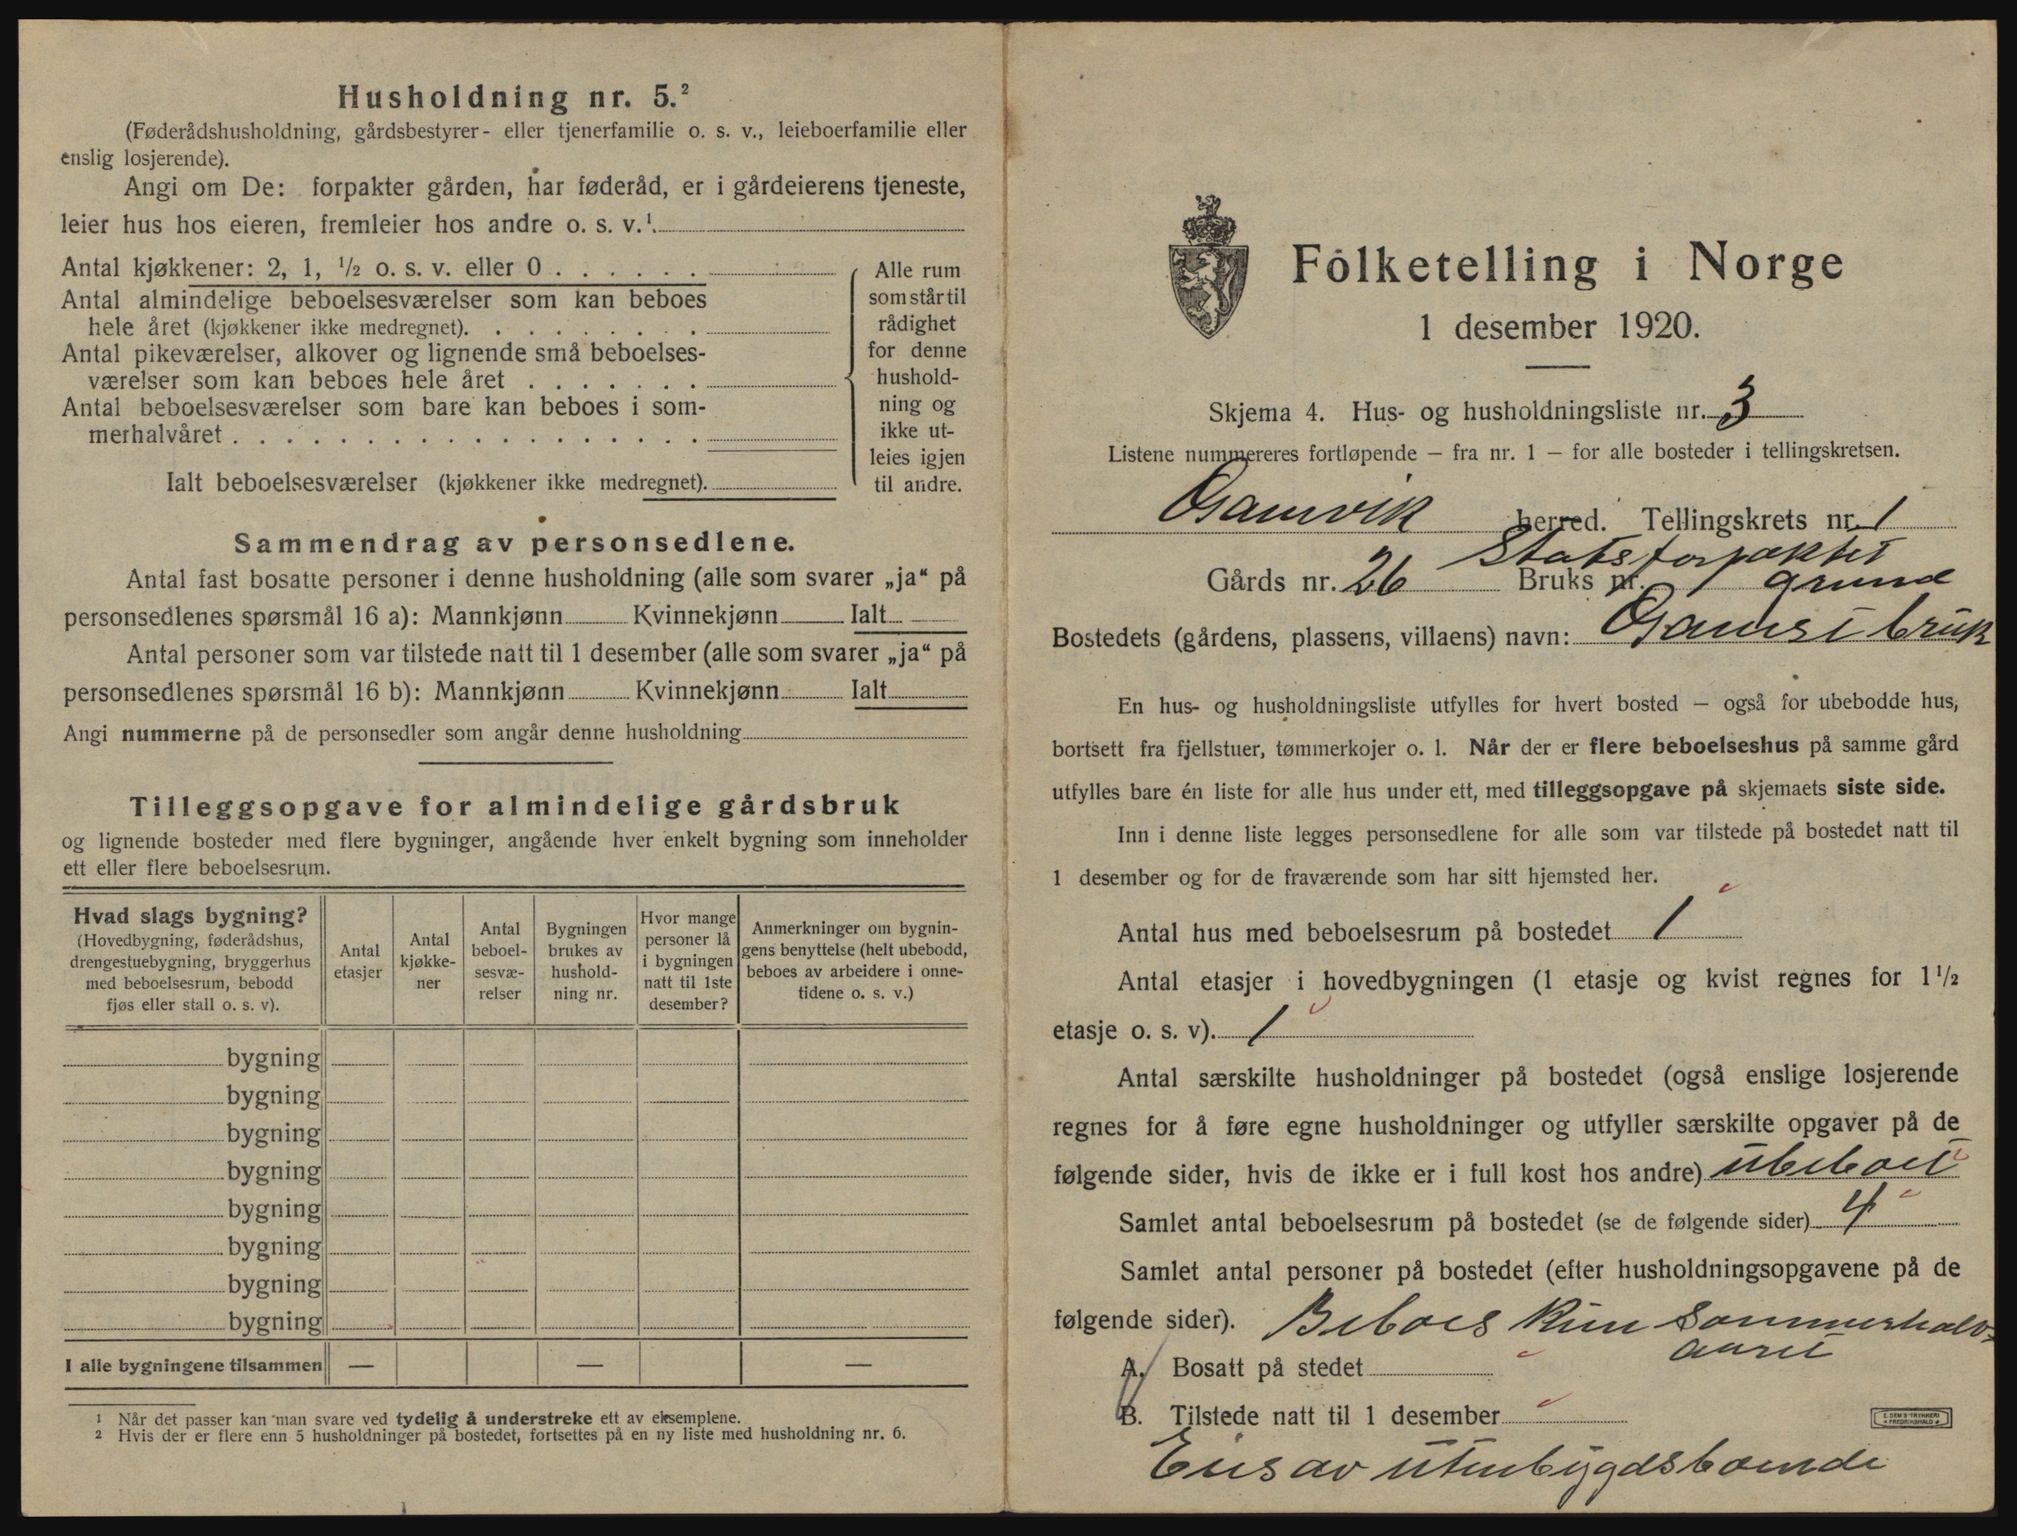 Husholdning nr. 5.²
(Føderådshusholdning, gårdsbestyrer- eller tjenerfamilie o. s. v., leieboerfamilie eller
enslig losjerende).
Angi om De: forpakter gården, har føderåd, er i gårdeierens tjeneste,
leier hus hos eieren, fremleier hos andre o. s. v.¹.
Antal kjøkkener: 2, 1, ½ o. s. v. eller 0 . . . . . .
Antal almindelige beboelsesværelser som kan beboes
hele året (kjøkkener ikke medregnet). . . . . . . . .
Antal pikeværelser, alkover og lignende små beboelses-
værelser som kan beboes hele året . . . . . . .
Antal beboelsesværelser som bare kan beboes i som-
merhalvåret . . . . . . . . . . . . . . . . . .
Ialt beboelsesværelser (kjøkkener ikke medregnet).
Alle rum
som står til
rådighet
for denne
hushold-
ning og
ikke ut-
leies igjen
til andre.
Sammendrag av personsedlene.
Antal fast bosatte personer i denne husholdning (alle som svarer „ja“ på
personsedlenes spørsmål 16 a): Mannkjønn Kvinnekjønn Ialt
Antal personer som var tilstede natt til 1 desember (alle som svarer „ja“ på
personsedlenes spørsmål 16 b): Mannkjønn Kvinnekjønn Ialt
Angi nummerne på de personsedler som angår denne husholdning
Tilleggsopgave for almindelige gårdsbruk
og lignende bosteder med flere bygninger, angående hver enkelt bygning som inneholder
ett eller flere beboelsesrum.
Hvad slags bygning?
(Hovedbygning, føderådshus,
drengestuebygning, bryggerhus
med beboelsesrum, bebodd
fjøs eller stall o. s. v).
Antal
etasjer
Antal
kjøkke-
ner
Antal
beboel-
sesvæ-
relser
Bygningen
brukes av
hushold-
ning nr.
Hvor mange
personer lå
i bygningen
natt til 1ste
desember?
Anmerkninger om bygnin-
gens benyttelse (helt ubebodd,
beboes av arbeidere i onne-
tidene o. s. v.)
bygning
bygning
bygning
bygning
bygning
bygning
bygning
bygning
I alle bygningene tilsammen — — —
¹ Når det passer kan man svare ved tydelig å understreke ett av eksemplene.
² Hvis der er flere enn 5 husholdninger på bostedet, fortsettes på en ny liste med husholdning nr. 6.
Folketelling i Norge
1 desember 1920.
Skjema 4. Hus- og husholdningsliste nr. 3
Listene nummereres fortløpende – fra nr. 1 – for alle bosteder i tellingskretsen.
Gamvik herred. Tellingskrets nr. 1
Statsforpaktet
Gårds nr. 26 Bruks nr. grund
Bostedets (gårdens, plassens, villaens) navn: bruk
En hus- og husholdningsliste utfylles for hvert bosted – også for ubebodde hus,
bortsett fra fjellstuer, tømmerkojer o. l. Når der er flere beboelseshus på samme gård
utfylles bare én liste for alle hus under ett, med tilleggsopgave på skjemaets siste side.
Inn i denne liste legges personsedlene for alle som var tilstede på bostedet natt til
1 desember og for de fraværende som har sitt hjemsted her.
Antal hus med beboelsesrum på bostedet 1
Antal etasjer i hovedbygningen (1 etasje og kvist regnes for 1½
etasje o. s. v). 1
Antal særskilte husholdninger på bostedet (også enslige losjerende
regnes for å føre egne husholdninger og utfyller særskilte opgaver på de
følgende sider, hvis de ikke er i full kost hos andre) ubeboet
Samlet antal beboelsesrum på bostedet (se de følgende sider) 4
Samlet antal personer på bostedet (efter husholdningsopgavene på de
følgende sider). Beboes kun sommerhalv-
aaret
A. Bosatt på stedet
B. Tilstede natt til 1 desember
E. SEM'S TRYKKERI
FREDRIKSHALD
Eies av utenbygdsboende